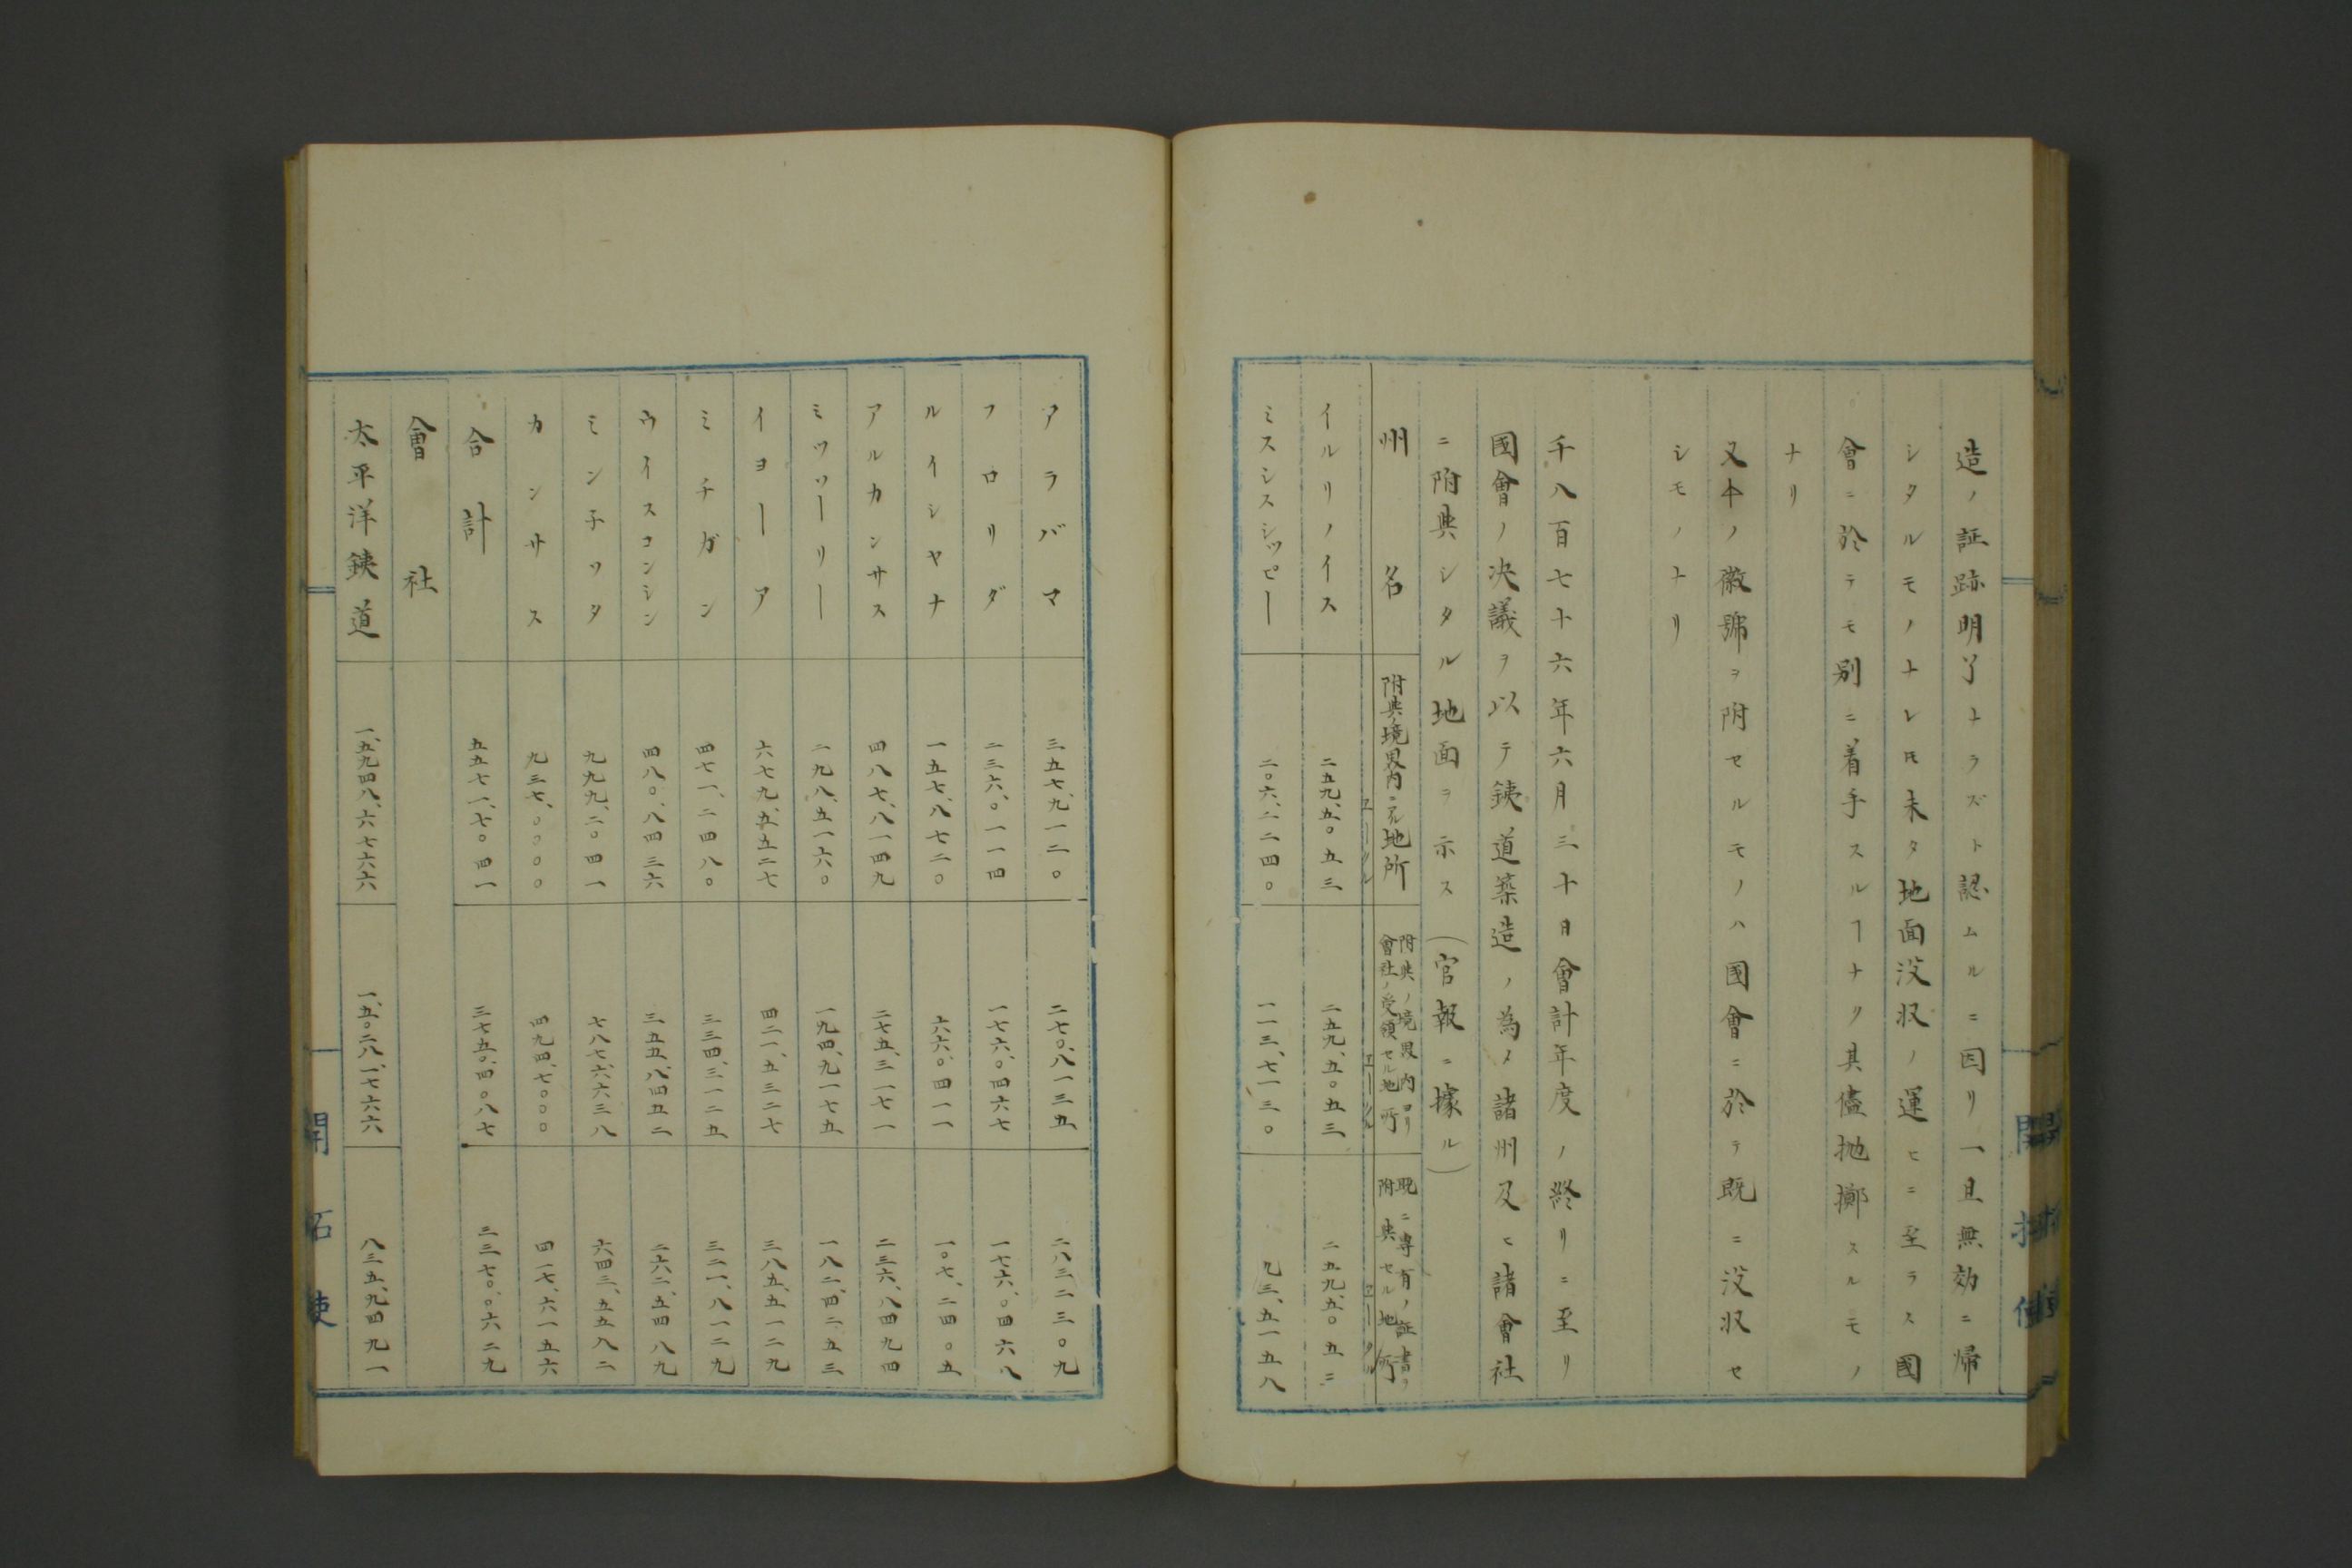 造ノ証跡明了トラズト認ムルニ因リ一旦無効ニ帰
シタルモノナレ𪜈未タ地面没収ノ運ヒニ至ラス國
會ニ於テモ別ニ着手スルヿナク其儘抛擲スルモノ
ナリ
又本ノ徽號ヲ附セルモノハ國會ニ於テ既ニ没収セ
シモノナリ
千八百七十六年六月三十日會計年度ノ終リニ至リ
國會ノ决議ヲ以テ銕道築造ノ為メ諸州及ヒ諸會社
ニ附與シタル地面ヲ示ス(官報ニ據ル)
州名 附與ノ境界内ニアル地所 附與ノ境界内ヨリ會社ノ受領セル地所 既ニ専有ノ証書ヲ附與セル地所
エークル エークル エークル
イルリノイス 二五九、五〇五三 二五九、五〇五三 二五九、五〇五三
ミスシスシッピー 二〇六、二二四〇 一一三、七一三〇 九三、五一五八
アラバマ 三五七、九一二〇 二七〇、八一三五 二八三二三〇九
フロリダ 二三六、〇一一四 一七六、〇四六七 一七六、〇四六八
ルイシヤナ 一五七、八七二〇 六六、〇四一一 一〇七、二四〇五
アルカンサス 四八七、八一四九 二七五、三一七一 二三六、八四九四
ミツツーリー 二九八、五一六〇 一九四、九一七五 一八二、四二五三
イヨーア 六七九、五五二七 四二一、五三二七 三八五、五一二九
ミチガン 四七一、二四八〇 三三四、三一二五 三二一、八一二九
ウイスコンシン 四八〇、八四三六 三五五、八四五二 二六二、五四八九
ミン子ツタ 九九九、二〇四一 七八七、六六三八 六四三、五五八二
カンサス 九三七、〇〇〇〇 四九四、七〇〇〇 四一七、六一五六
合計 五五七一、七〇四一 三七五〇、四〇八七 二三七〇、〇六二九
會社
太平洋銕道 一、五九四八、六七六六 一、五〇二八、一七六六 八三五、九四九一
開拓使